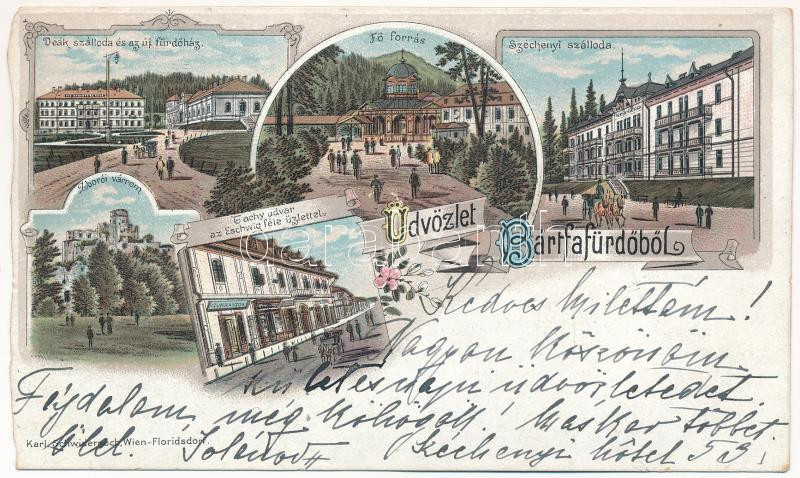 Deák szálloda és az új fürdőház.
Fő forrás
Széchenyi szálloda.
Zborói várrom.
Tachy udvar
az Eschwig féle üzlettel.
Üdvözlet
Bártfafürdőből
Kedves
Nagyon köszönöm
üdvözletedet
Fájdalom, még köhögök. Máskor többet.
Ölel.
Széchenyi hôtel 53
Karl Schwidernoch, Wien-Floridsdorf.